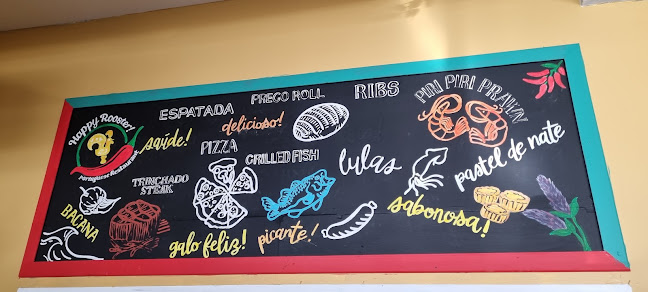 Happy Rooster!
Portuguese Restaurant
saúde!
ESPATADA
PREGO ROLL
delicioso!
RIBS
PIRI PIRI PRAWN
TRINCHADO
STEAK
PIZZA
GRILLED FISH
lulas
pastel de nate
BACANA
galo feliz!
picante!
sabonosa!